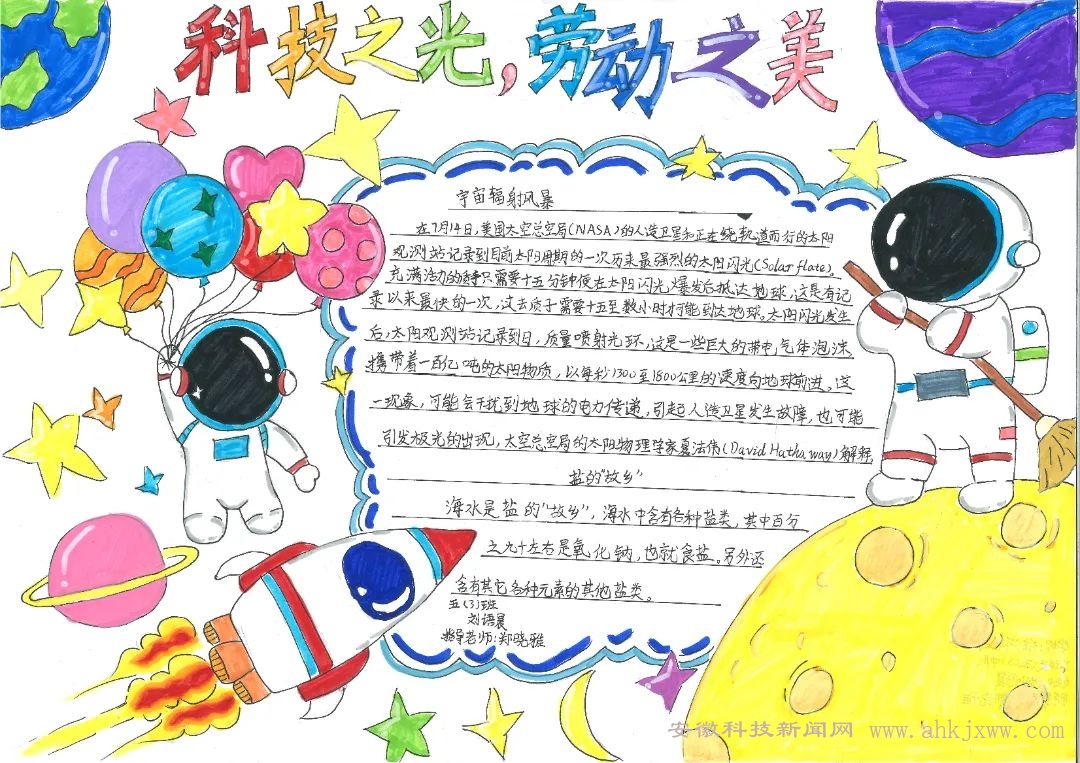 科技之光,劳动之美
宇宙辐射风暴
在7月14日,美国太空总空局(NASA)的人造卫星和正在绕轨道而行的太阳
观测站记录到目前太阳周期的一次历来最强烈的太阳闪光(Solar flate),
充满活力的质子只需要十五分钟便在太阳闪光爆发后抵达地球,这是有记
录以来最快的一次,过去质子需要十五至数小时才能到达地球。太阳闪光发生
后,太阳观测站记录到日,质量喷射光环,这是一些巨大的带电气体泡沫,
携带着一百亿吨的太阳物质,以每秒1300至1800公里的速度向地球前进。这
一现象,可能会干扰到地球的电力传递,引起人造卫星发生故障,也可能
引发极光的出现,太空总空局的太阳物理学家夏法伟(David Hathaway)解释,
盐的"故乡"
海水是盐的"故乡",海水中含有各种盐类,其中百分
之九十左右是氧化钠,也就食盐。另外还
含有其它各种元素的其他盐类。
五(3)班
刘语晨
指导老师:郑晓雅
安徽科技新闻网 www.ahkjxww.com